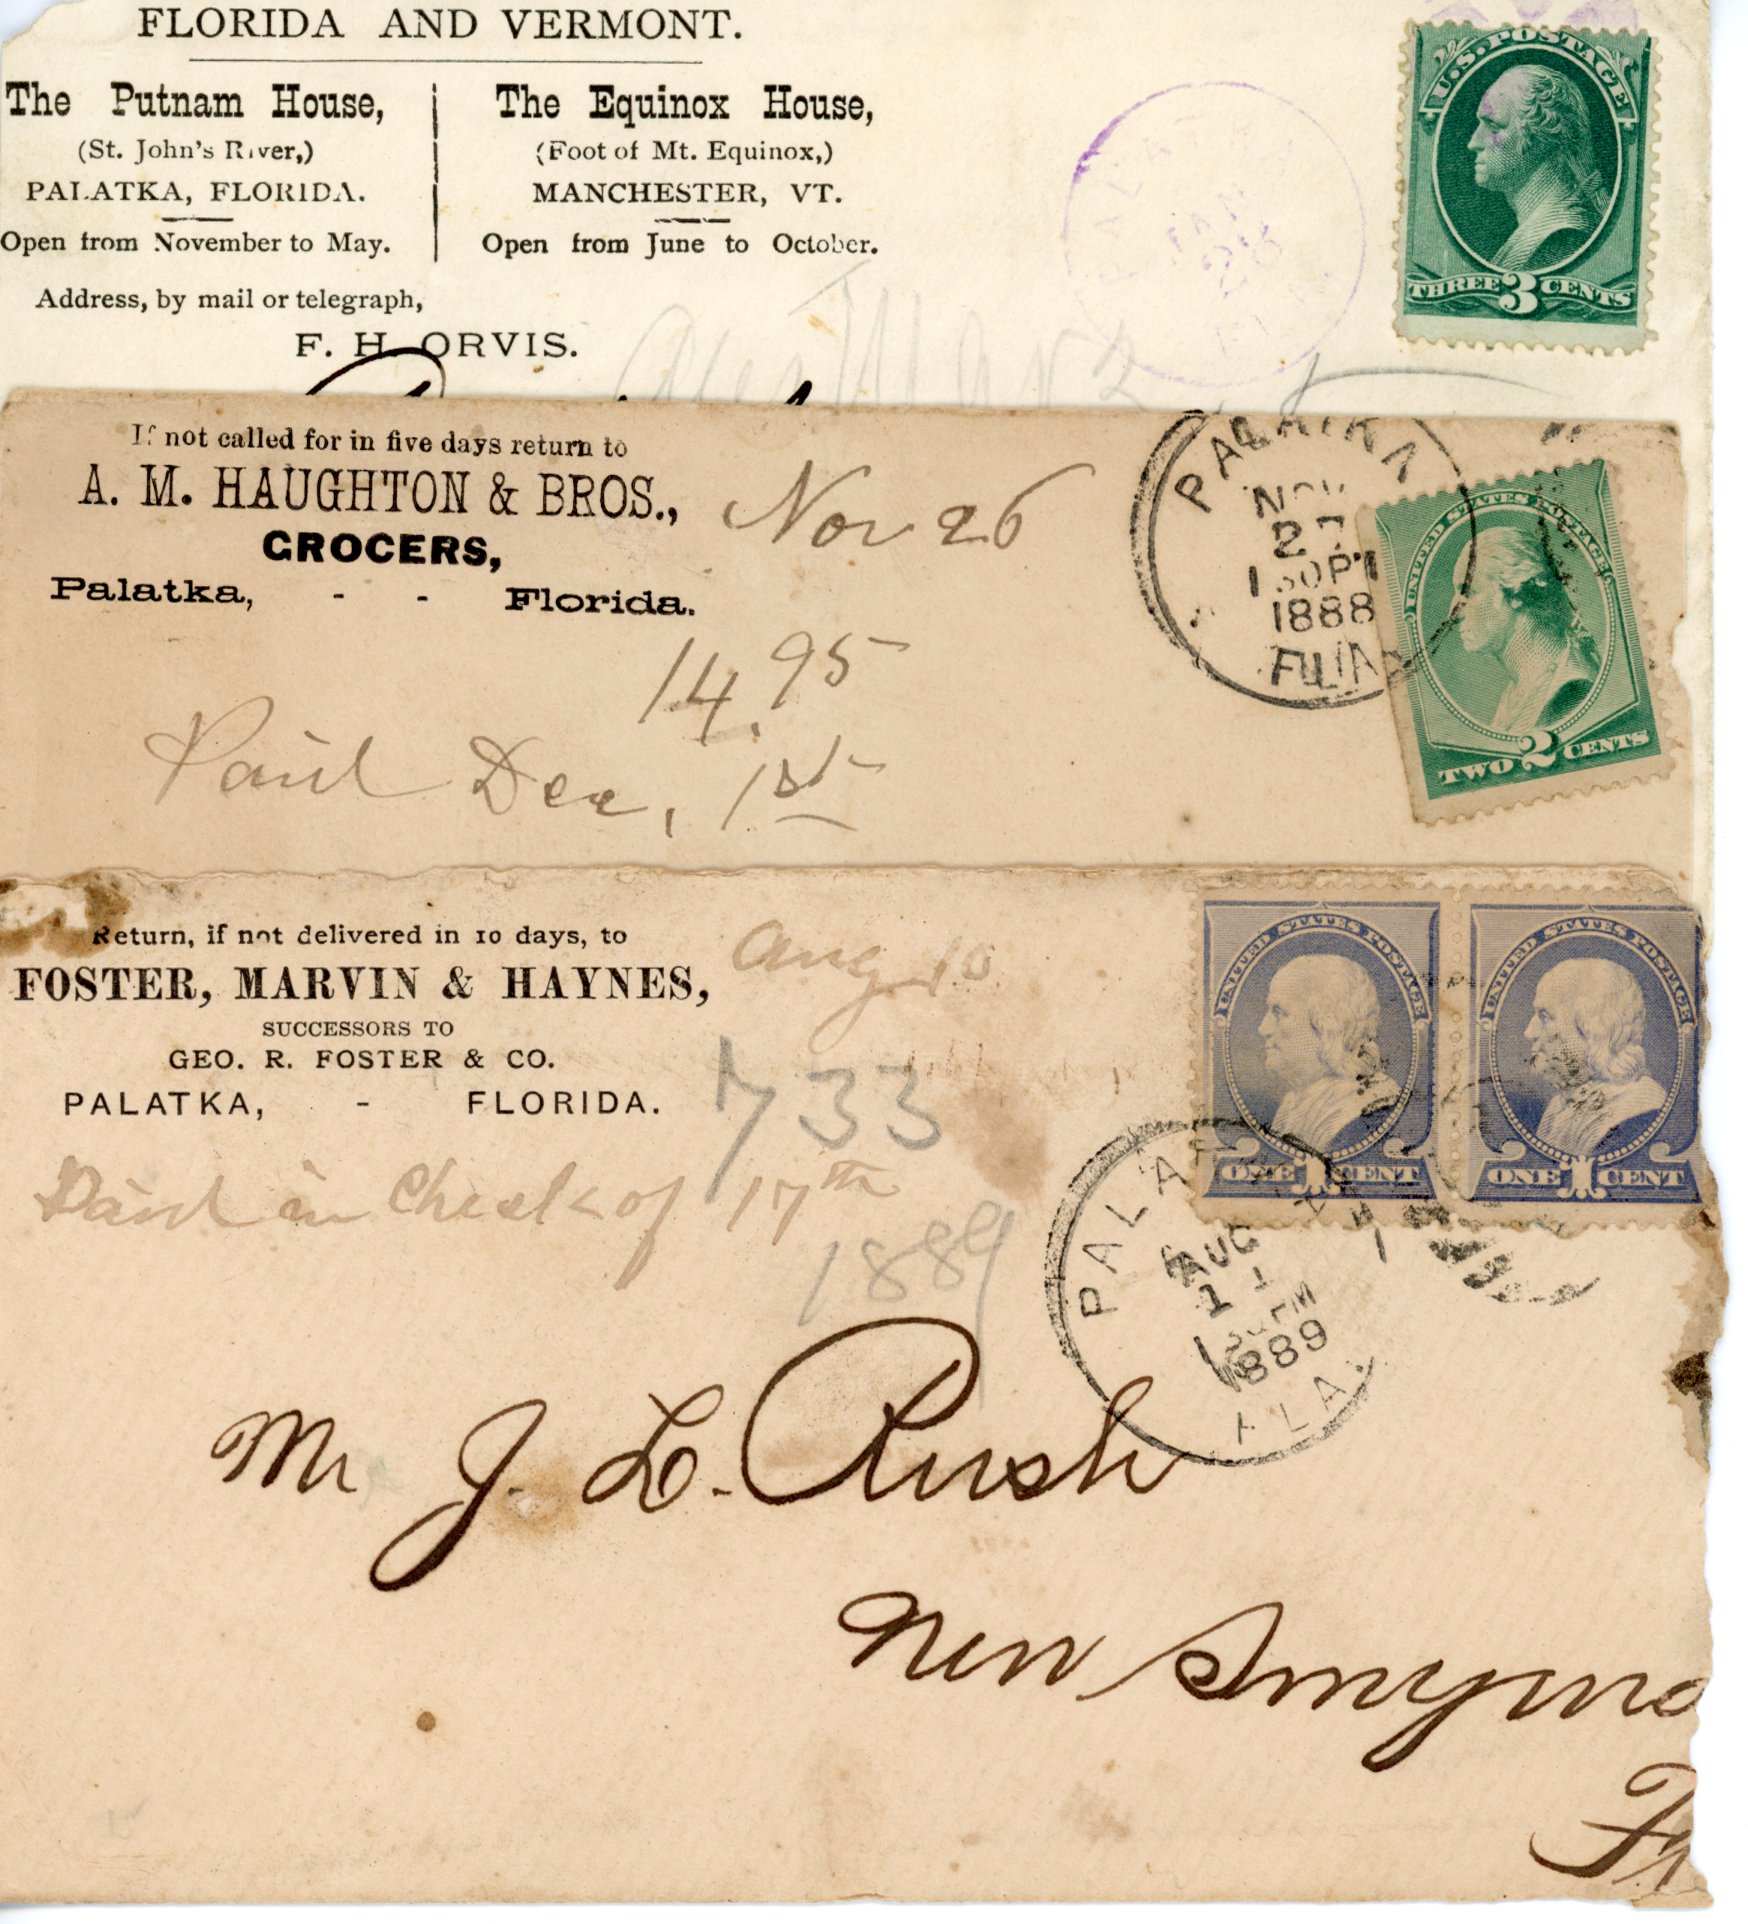 FLORIDA AND VERMONT.
The Putnam House,
(St. John's River,)
PALATKA, FLORIDA.
Open from November to May.
The Equinox House,
(Foot of Mt. Equinox,)
MANCHESTER, VT.
Open from June to October.
Address, by mail or telegraph,
F. H. ORVIS.
PALATKA
JAN
28
U.S. POSTAGE
THREE 3 CENTS
If not called for in five days return to
A. M. HAUGHTON & BROS.,
GROCERS,
Palatka, - - Florida.
Nov 26
14.95
Paid Dec, 1st
PALATKA
NOV
27
1 30 PM
1888
FLA
UNITED STATES POSTAGE
TWO 2 CENTS
Return, if not delivered in 10 days, to
FOSTER, MARVIN & HAYNES,
SUCCESSORS TO
GEO. R. FOSTER & CO.
PALATKA, - FLORIDA.
Aug 10
733
Paid in Check of 17th
1889
PALATKA
AUG
11
1 30 PM
1889
ALA.
UNITED STATES POSTAGE
ONE 1 CENT
UNITED STATES POSTAGE
ONE 1 CENT
Mr J. L. Rush
New Smyrna